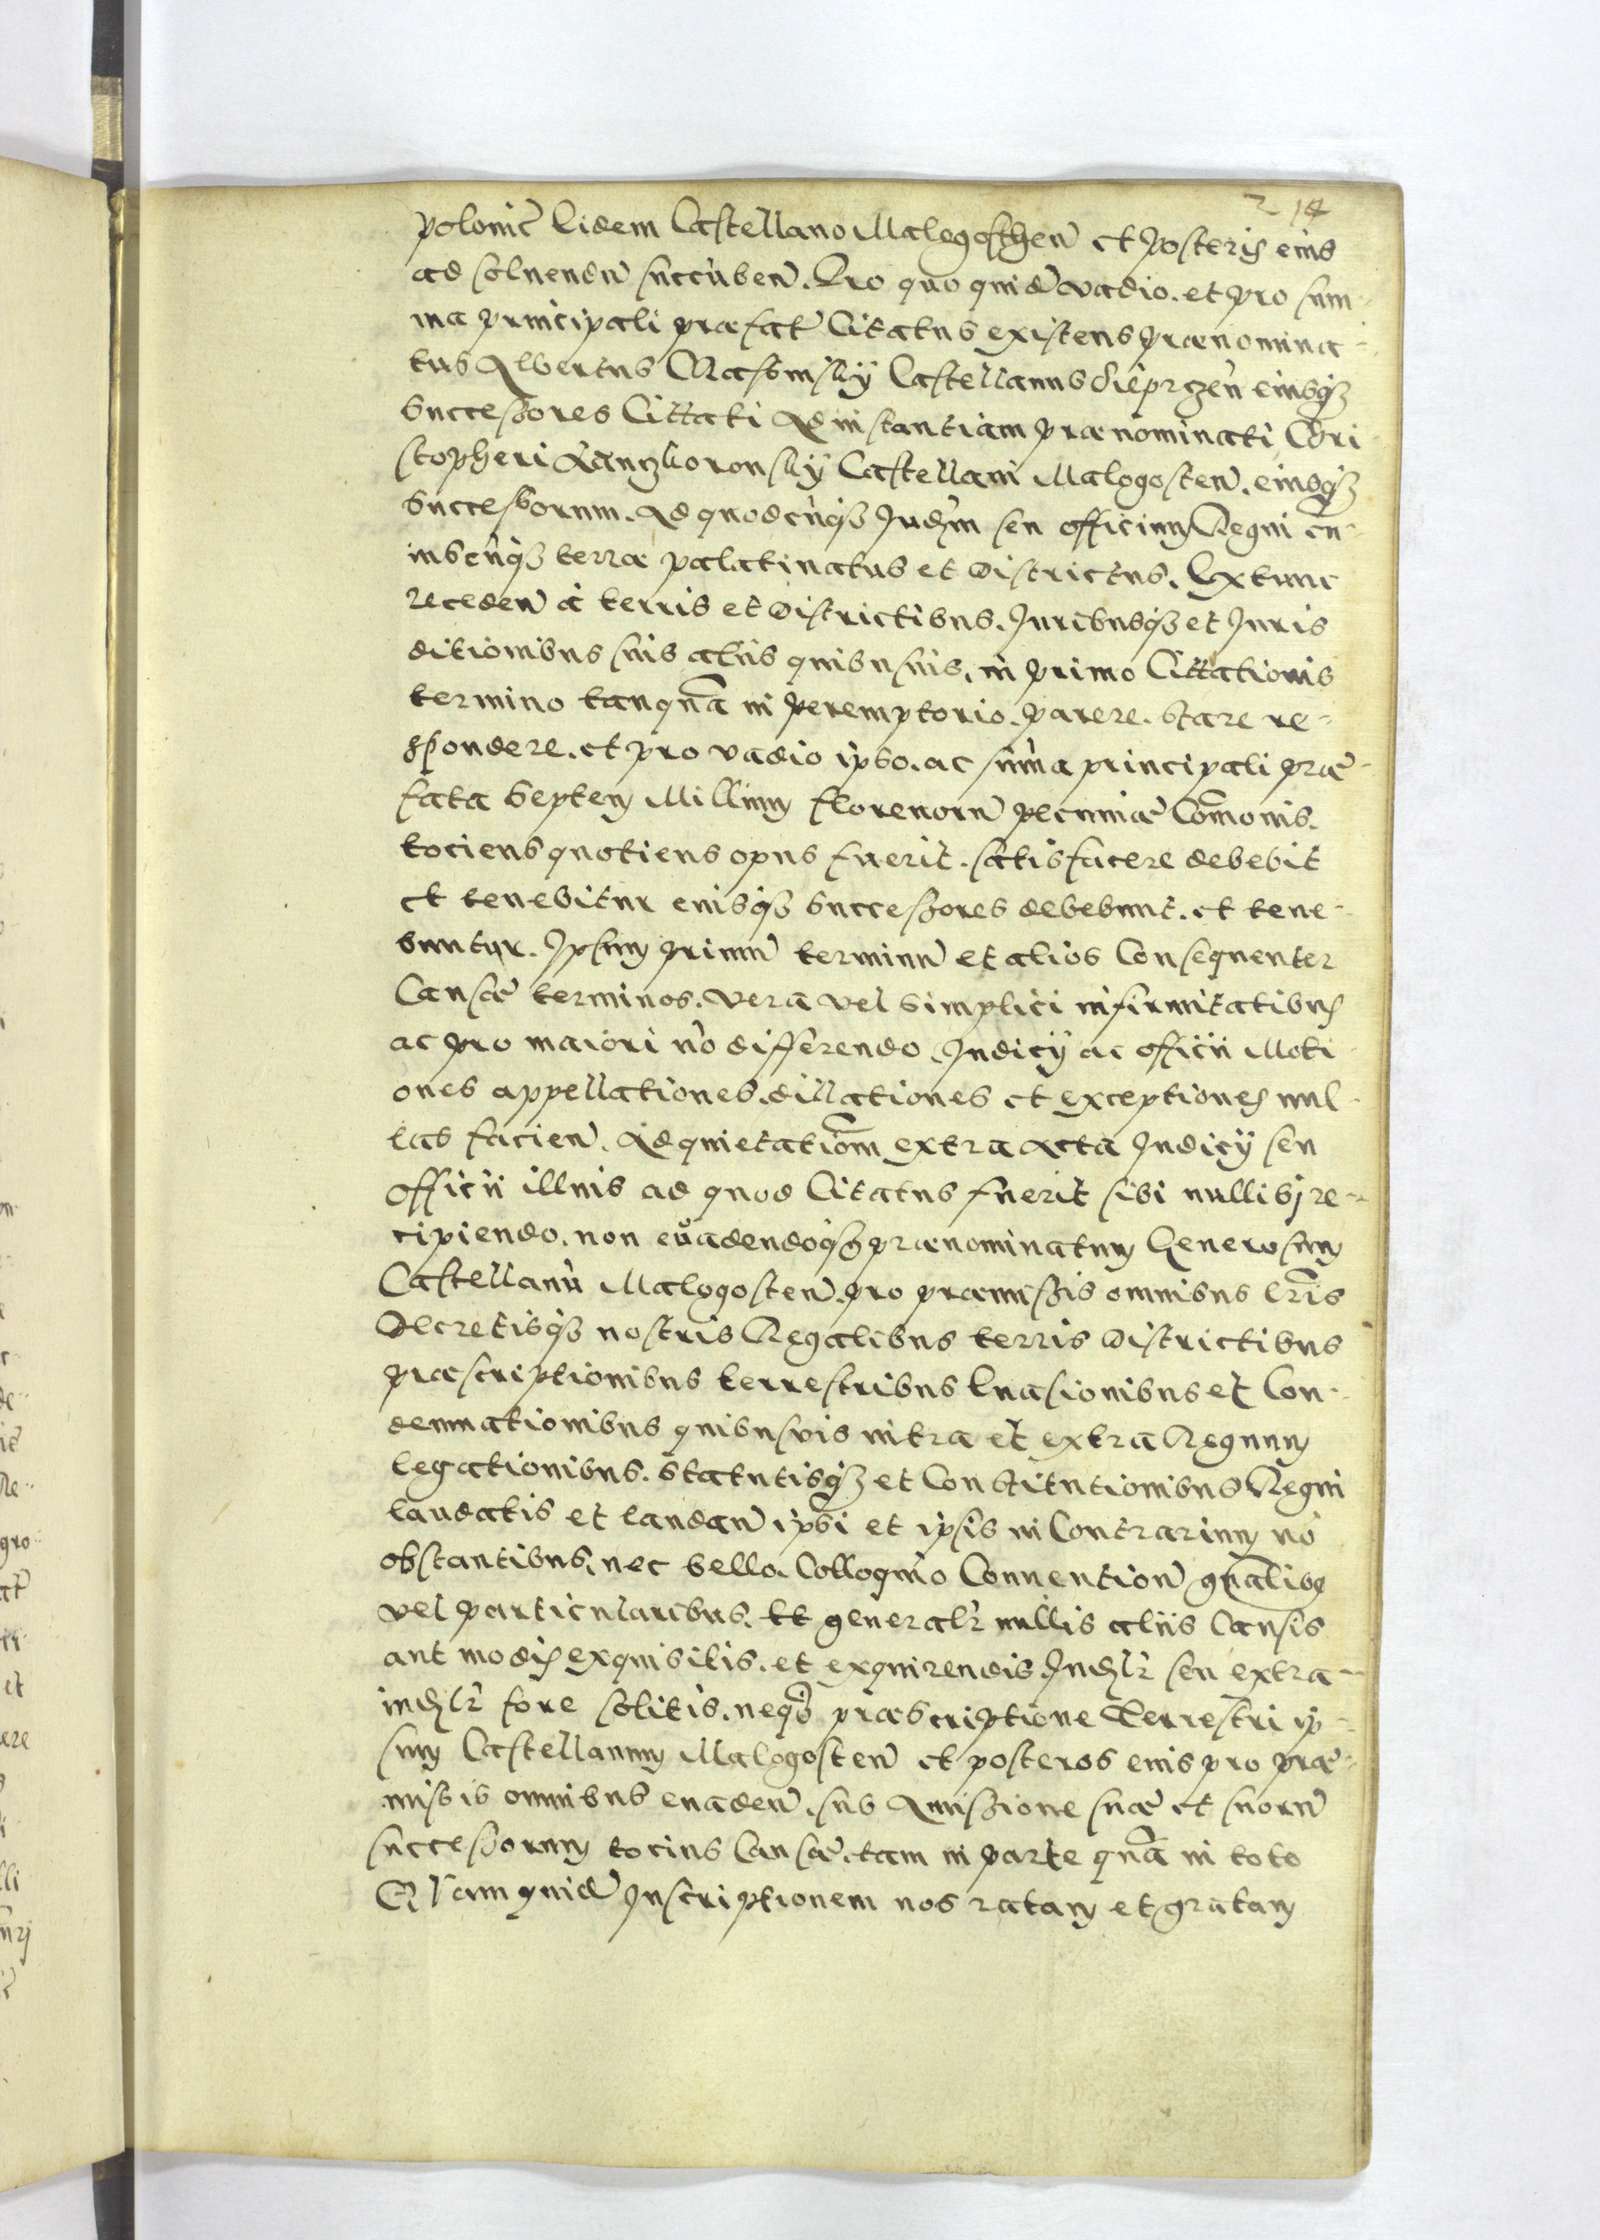 214
polonic̃ Eidem Castellano Malogosthen̄ et posteris eius
ad soluendū succūben̄. Pro quo quidē vadio. et pro sum-
ma principali præfat̄ Citatus existens prænomina-
tus Albertus Castellanus eiusq3
Successores Cittati Ad instantiam prænominati Chri-
stopheri Lanczkoronskÿ Castellani Malogosten̄. eiusq3
Successorum. Ad quodcūq3 Judm̄ seu officium Regni cu-
iuscūq3 terræ palatinatus et districtus. Extunc
receden̄ á terris et districtibus. Juribusq3 et Juris
ditionibus suis alÿs quibusuis, in primo Cittationis
termino tanquā in peremptorio. parere. stare re-
spondere. et pro vadio ipso. ac summa principali præ-
fata Septem Millium florenorū pecuniæ Com̄onis.
tociens quotiens opus fuerit. satisfacere debebit
et tenebitur eiusq3 Successores debebunt. et tene-
buntur. Ipsum primū terminū et alios Consequenter
Causæ terminos. vera vel simplici infirmitatibus
ac pro maiori nō differendo. Judicÿ ac officii Moti-
ones appellationes. dillationes et exceptiones nul-
las facien̄. Ad quietatiom̄ extra acta Judicÿ seu
officii illius ad quod Citatus fuerit sibi nullibj re-
cipiendo. non euadendoq3 prænominatum Generosum
Castellanū Malogosten̄. pro præmissis omnibus lr̄is
Decretisq3 nostris Regalibus terris districtibus
præscriptionibus terrestribus Euasionibus et Con-
demnationibus quibusuis intra et extra Regnum
legationibus. Statutisq3 et Constitutionibus Regni
laudatis et laudan̄ ipsi et ipsis in Contrarium nō
obstantibus, nec bello. Colloquio Conuention̄ gn̄alibus
vel particularibus. Et generalr̄ nullis aliis Causis
aut modis exquisitis. et exquirendis. Judlr̄ seu extra-
iudlr̄ fore solitis. neq3 præscriptione Terrestri ip-
sum Castellanum Malogosten̄ et posteros eius pro præ-
missis omnibus euaden̄. sub Amissione suæ et suorū
successorum tocius Causæ. tam in parte quā in toto
Quam quidē Inscriptionem nos ratam et gratam